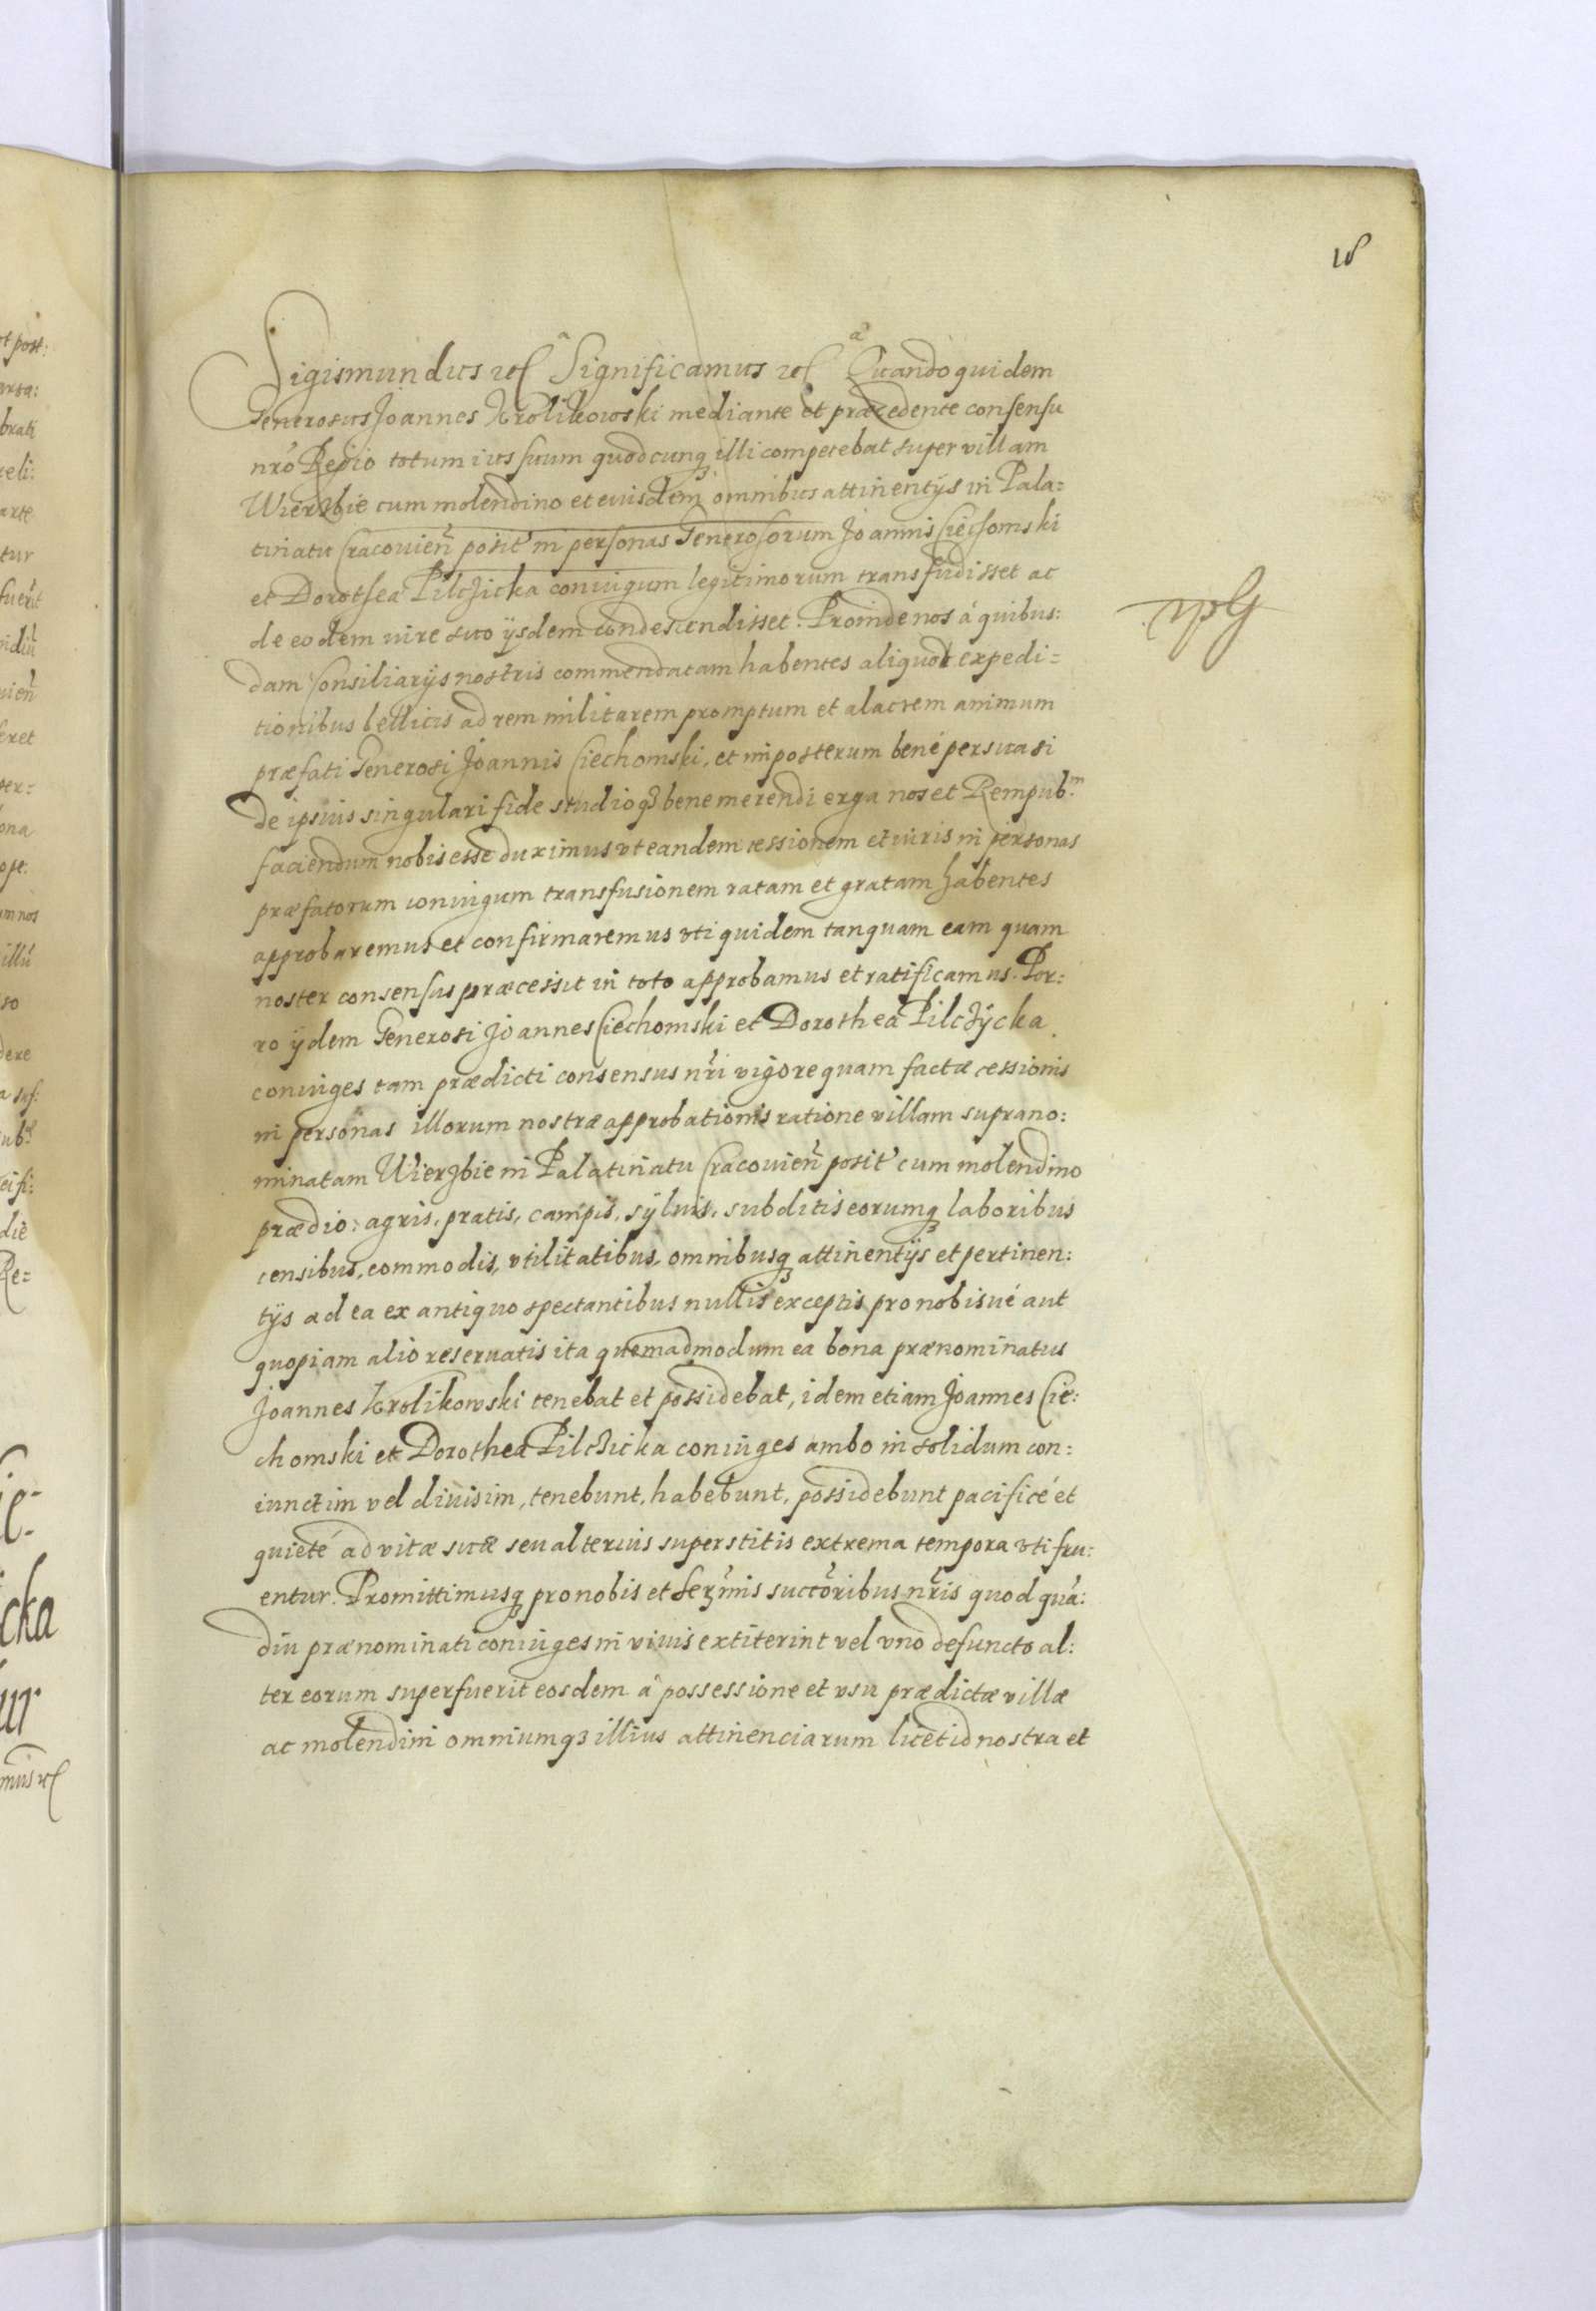 18
Sigismundus etc Significamus etc Quandoquidem
Generosus Joannes Krolikowski mediante et præcedente consensu
nrõ Regio totum ius suum quodcunq illi competebat super villam
Wierzbie cum molendino et eiusdem omnibus attinentÿs in Pala=
tinatu Cracouieñ posit' in personas Generosorum Joannis Ciechomski
et Dorothea Pilczicka coniugum legitimorum transfudisset ac
de eodem iure suo ÿsdem condescendisset. Proinde nos á quibus:
dam Consiliarÿs nostris commendatam habentes aliquot expedi=
tionibus bellicis ad rem militarem promptum et alacrem animum
præfati Generosi Joannis Ciechomski, et imposterum bené persuasi
de ipsius singulari fide studioq3 benemerendi erga nos et Rempub.m
faciendum nobis esse duximus vt eandem cessionem et iuris in personas
præfatorum coniugum transfusionem ratam et gratam habentes
approbaremus et confirmaremus vti quidem tanquam eam quam
noster consensus præcessit in toto approbamus et ratificamus. Por:
ro ÿdem Generosi Joannes Ciechomski et Dorothea Pilczÿcka
coniuges tam prædicti consensus nr̃i vigore quam factæ cessionis
in personas illorum nostræ approbationis ratione villam suprano:
minatam Wierzbie in Palatinatu Cracouieñ posit' cum molendino
prædio: agris, pratis, campis, sÿluis, subditis eorumq3 laboribus
censibus, commodis, vtilitatibus, omnibusq3 attinentÿs et pertinen:
tÿs ad ea ex antiquo spectantibus nullis exceptis pro nobisué aut
quopiam alio reseruatis ita quemadmodum ea bona prænominatus
Joannes Krolikowski tenebat et possidebat, idem etiam Joannes Cie:
chomski et Dorothea Pilczicka coniuges ambo in solidum con:
iunctim vel diuisim, tenebunt, habebunt, possidebunt pacificé et
quieté ad vitæ suæ seu alterius superstitis extrema tempora vti fru:
entur. Promittimusq3 pro nobis et Serm̃is succõribus nr̃is quod quá:
diu prænominati coniuges in viuis extiterint vel vno defuncto al:
ter eorum superfuerit eosdem â possessione et vsu prædictæ villæ
ac molendini omniumq3 illius attinenciarum licet id nostra et